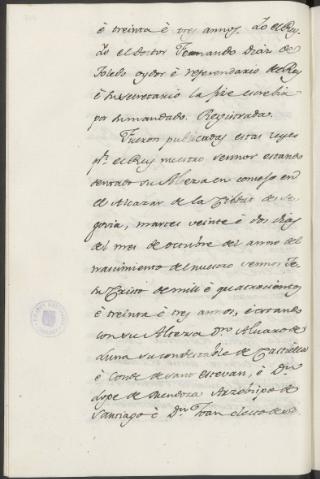 è treinta è tres annos. Yo el Rey.
Yo el Doctor Fernando Diaz de
Toledo oydor è referendario del Rey
è su secretario la fiz escrebir
por su mandado. Registrada.
Fueron publicadas estas leyes
por el Rey nuestro sennor estando
sentado su Alteza en consejo en
el Alcazar de la Cibdad de Se-
govia, martes veinte è dos dias
del mes de octubre del anno del
nascimiento del nuestro sennor Je-
su Cristo de mill è quatrocientos
è treinta è tres annos, è estando
con su Alteza Dn. Alvaro de
Luna su condestable de Castiella
è Conde de Sant Estevan, è Dn.
Lope de Mendoza Arzobispo de
Santiago è Dn. Fran electo de